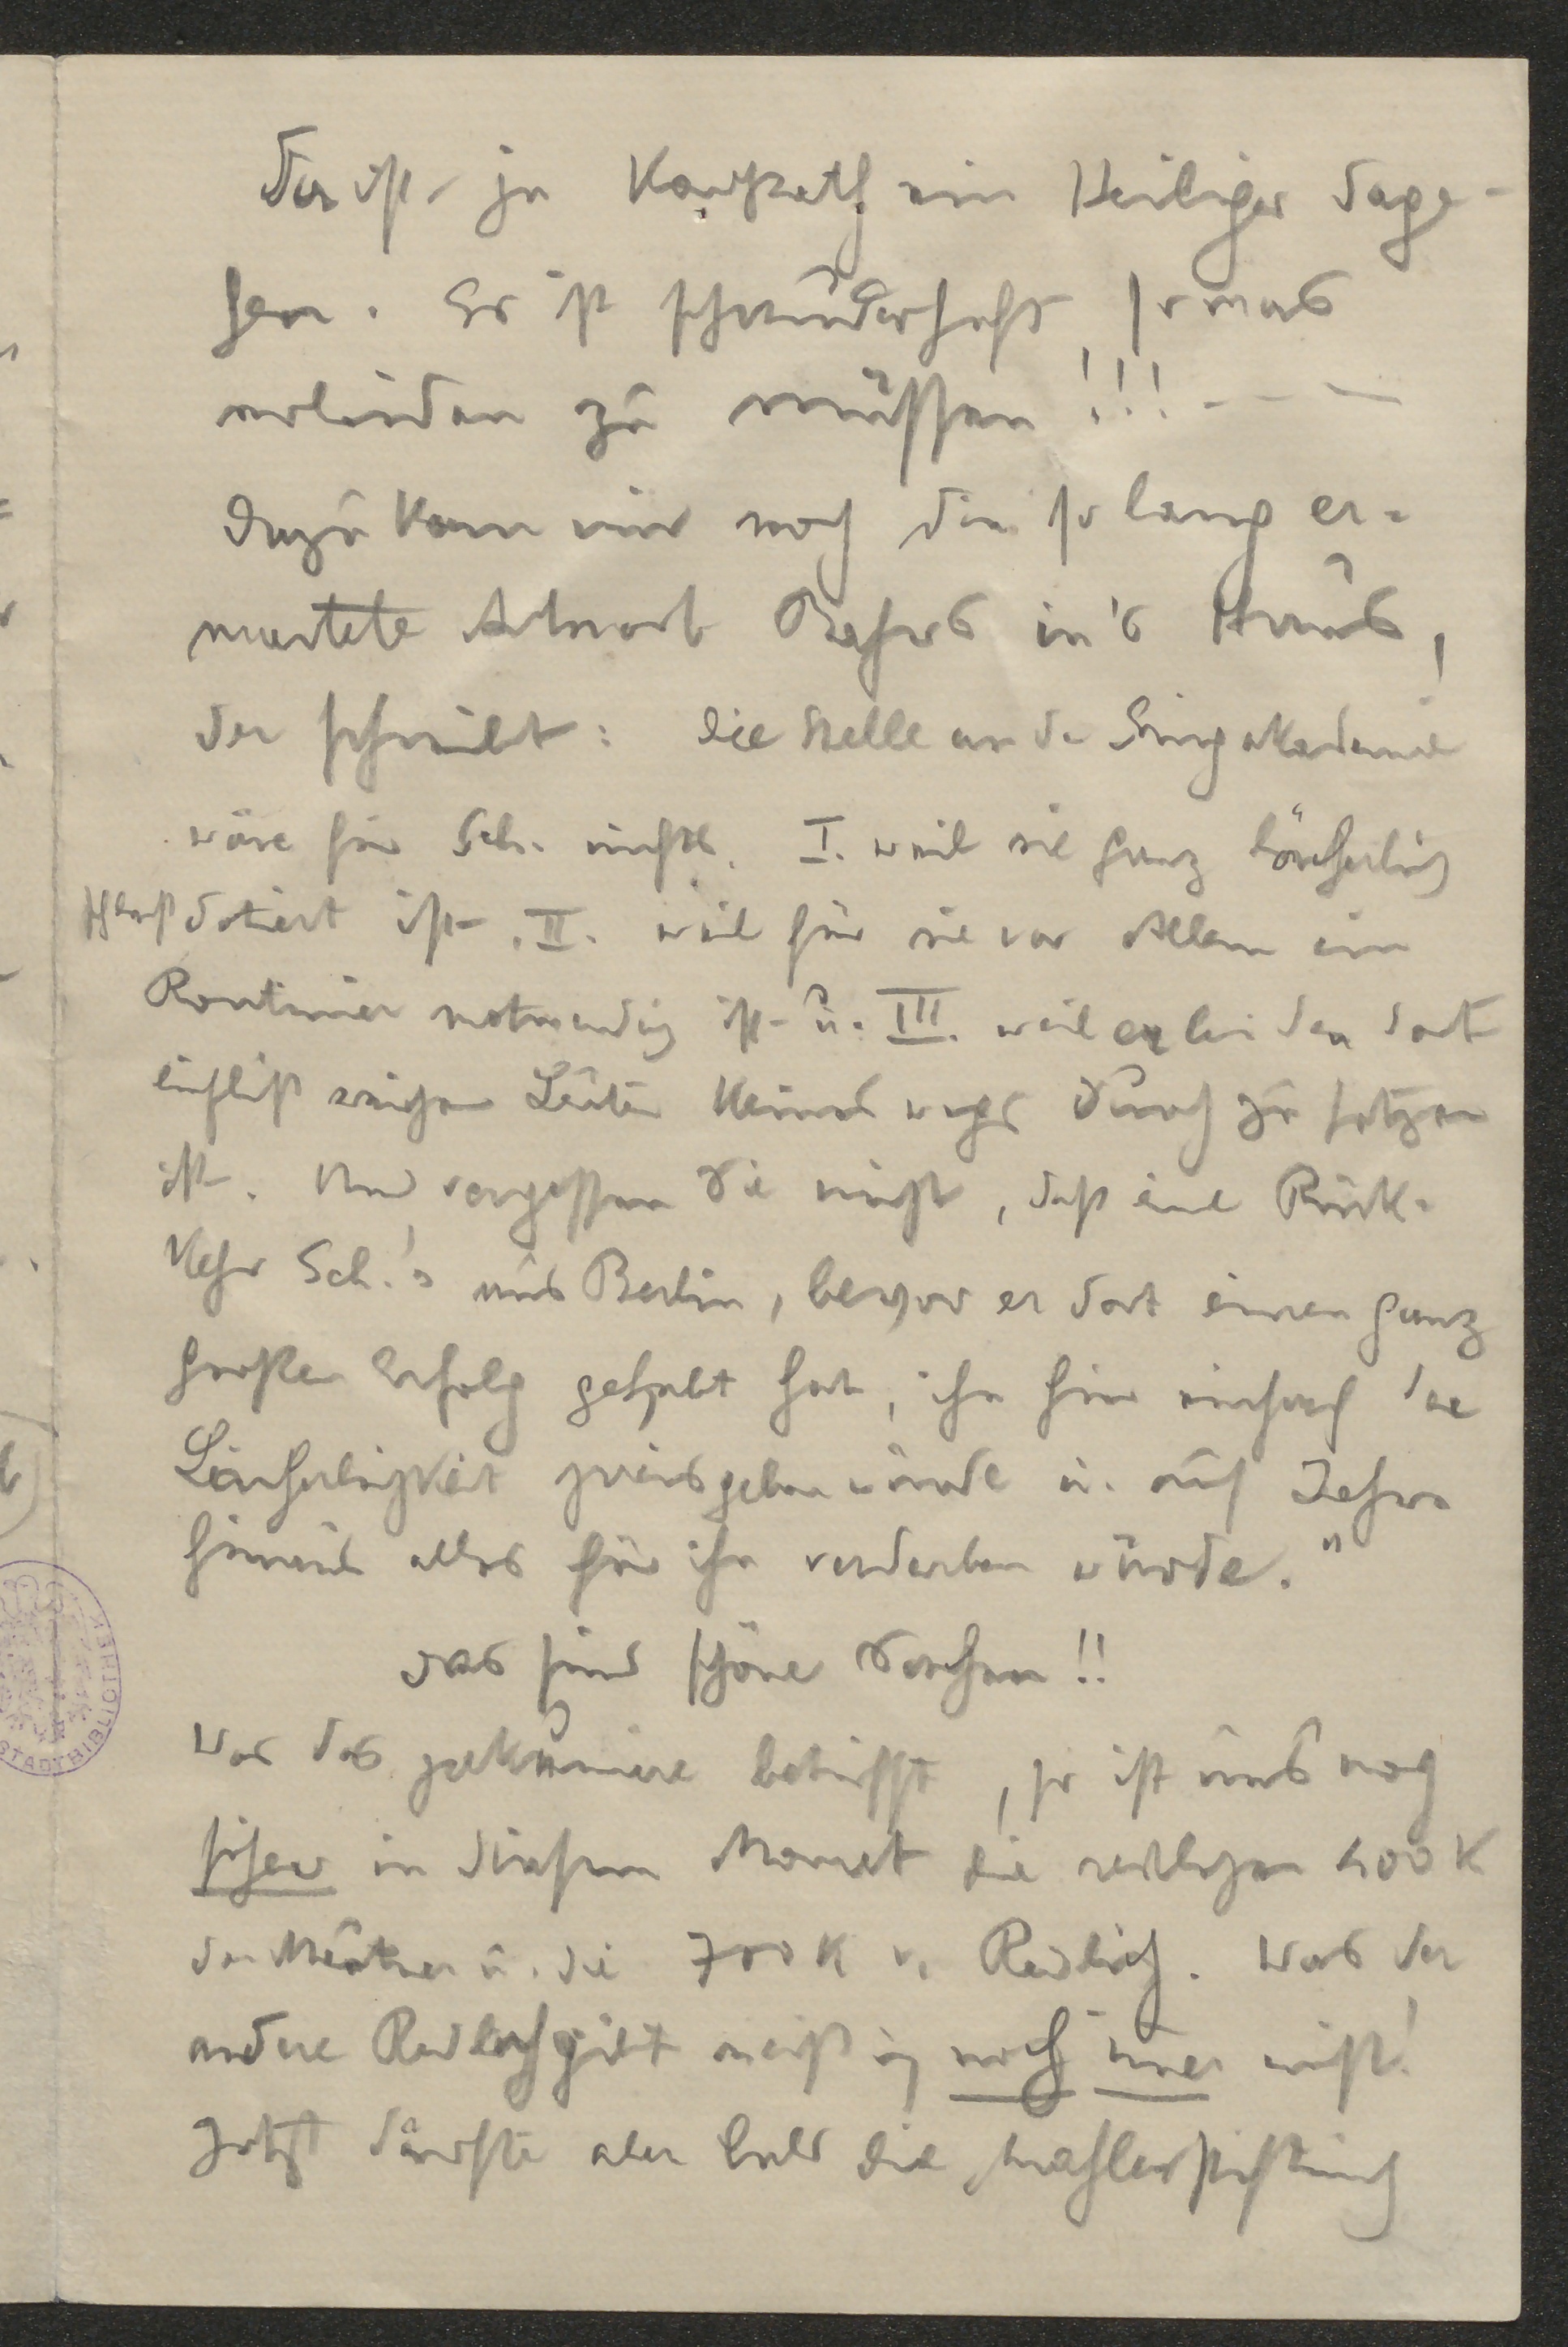 Da ist ja Konrath ein Heiliger dage-
gen. Es ist schauderhaft so was
erleiden zu müssen!!! — —
Dazu kam mir noch die so lang er-
wartete Antwort Bahrs in's Haus,
der schreibt: Die Stelle an der Singakademie
wäre für Sch. nichts. I. weil sie ganz lächerlich
schlecht dotiert ist. II. weil für sie vor Allem ein
Routinier notwendig ist u. III. weil er bei den dort
einflußreichen Leuten keineswegs durch zu setzen
ist. Und vergessen Sie nicht, daß eine Rück-
kehr Sch.'s aus Berlin, bevor er dort einen ganz
großen Erfolg gehabt hat, ihn hier einfach der
Lächerlichkeit preisgeben würde u. auf Jahre
hinaus alles für ihn verderben würde."
Das sind schöne Sachen!!
Was das pekuniäre betrifft, so ist uns noch
sicher in diesem Monat die restlichen 400 K
der u. die 700 K v. Redlich. Was der
andere Redlich gibt weiß ich noch immer nicht!
Jetzt dürfte aber bald die Mahlerstiftung
STADTBIBLIOTHEK